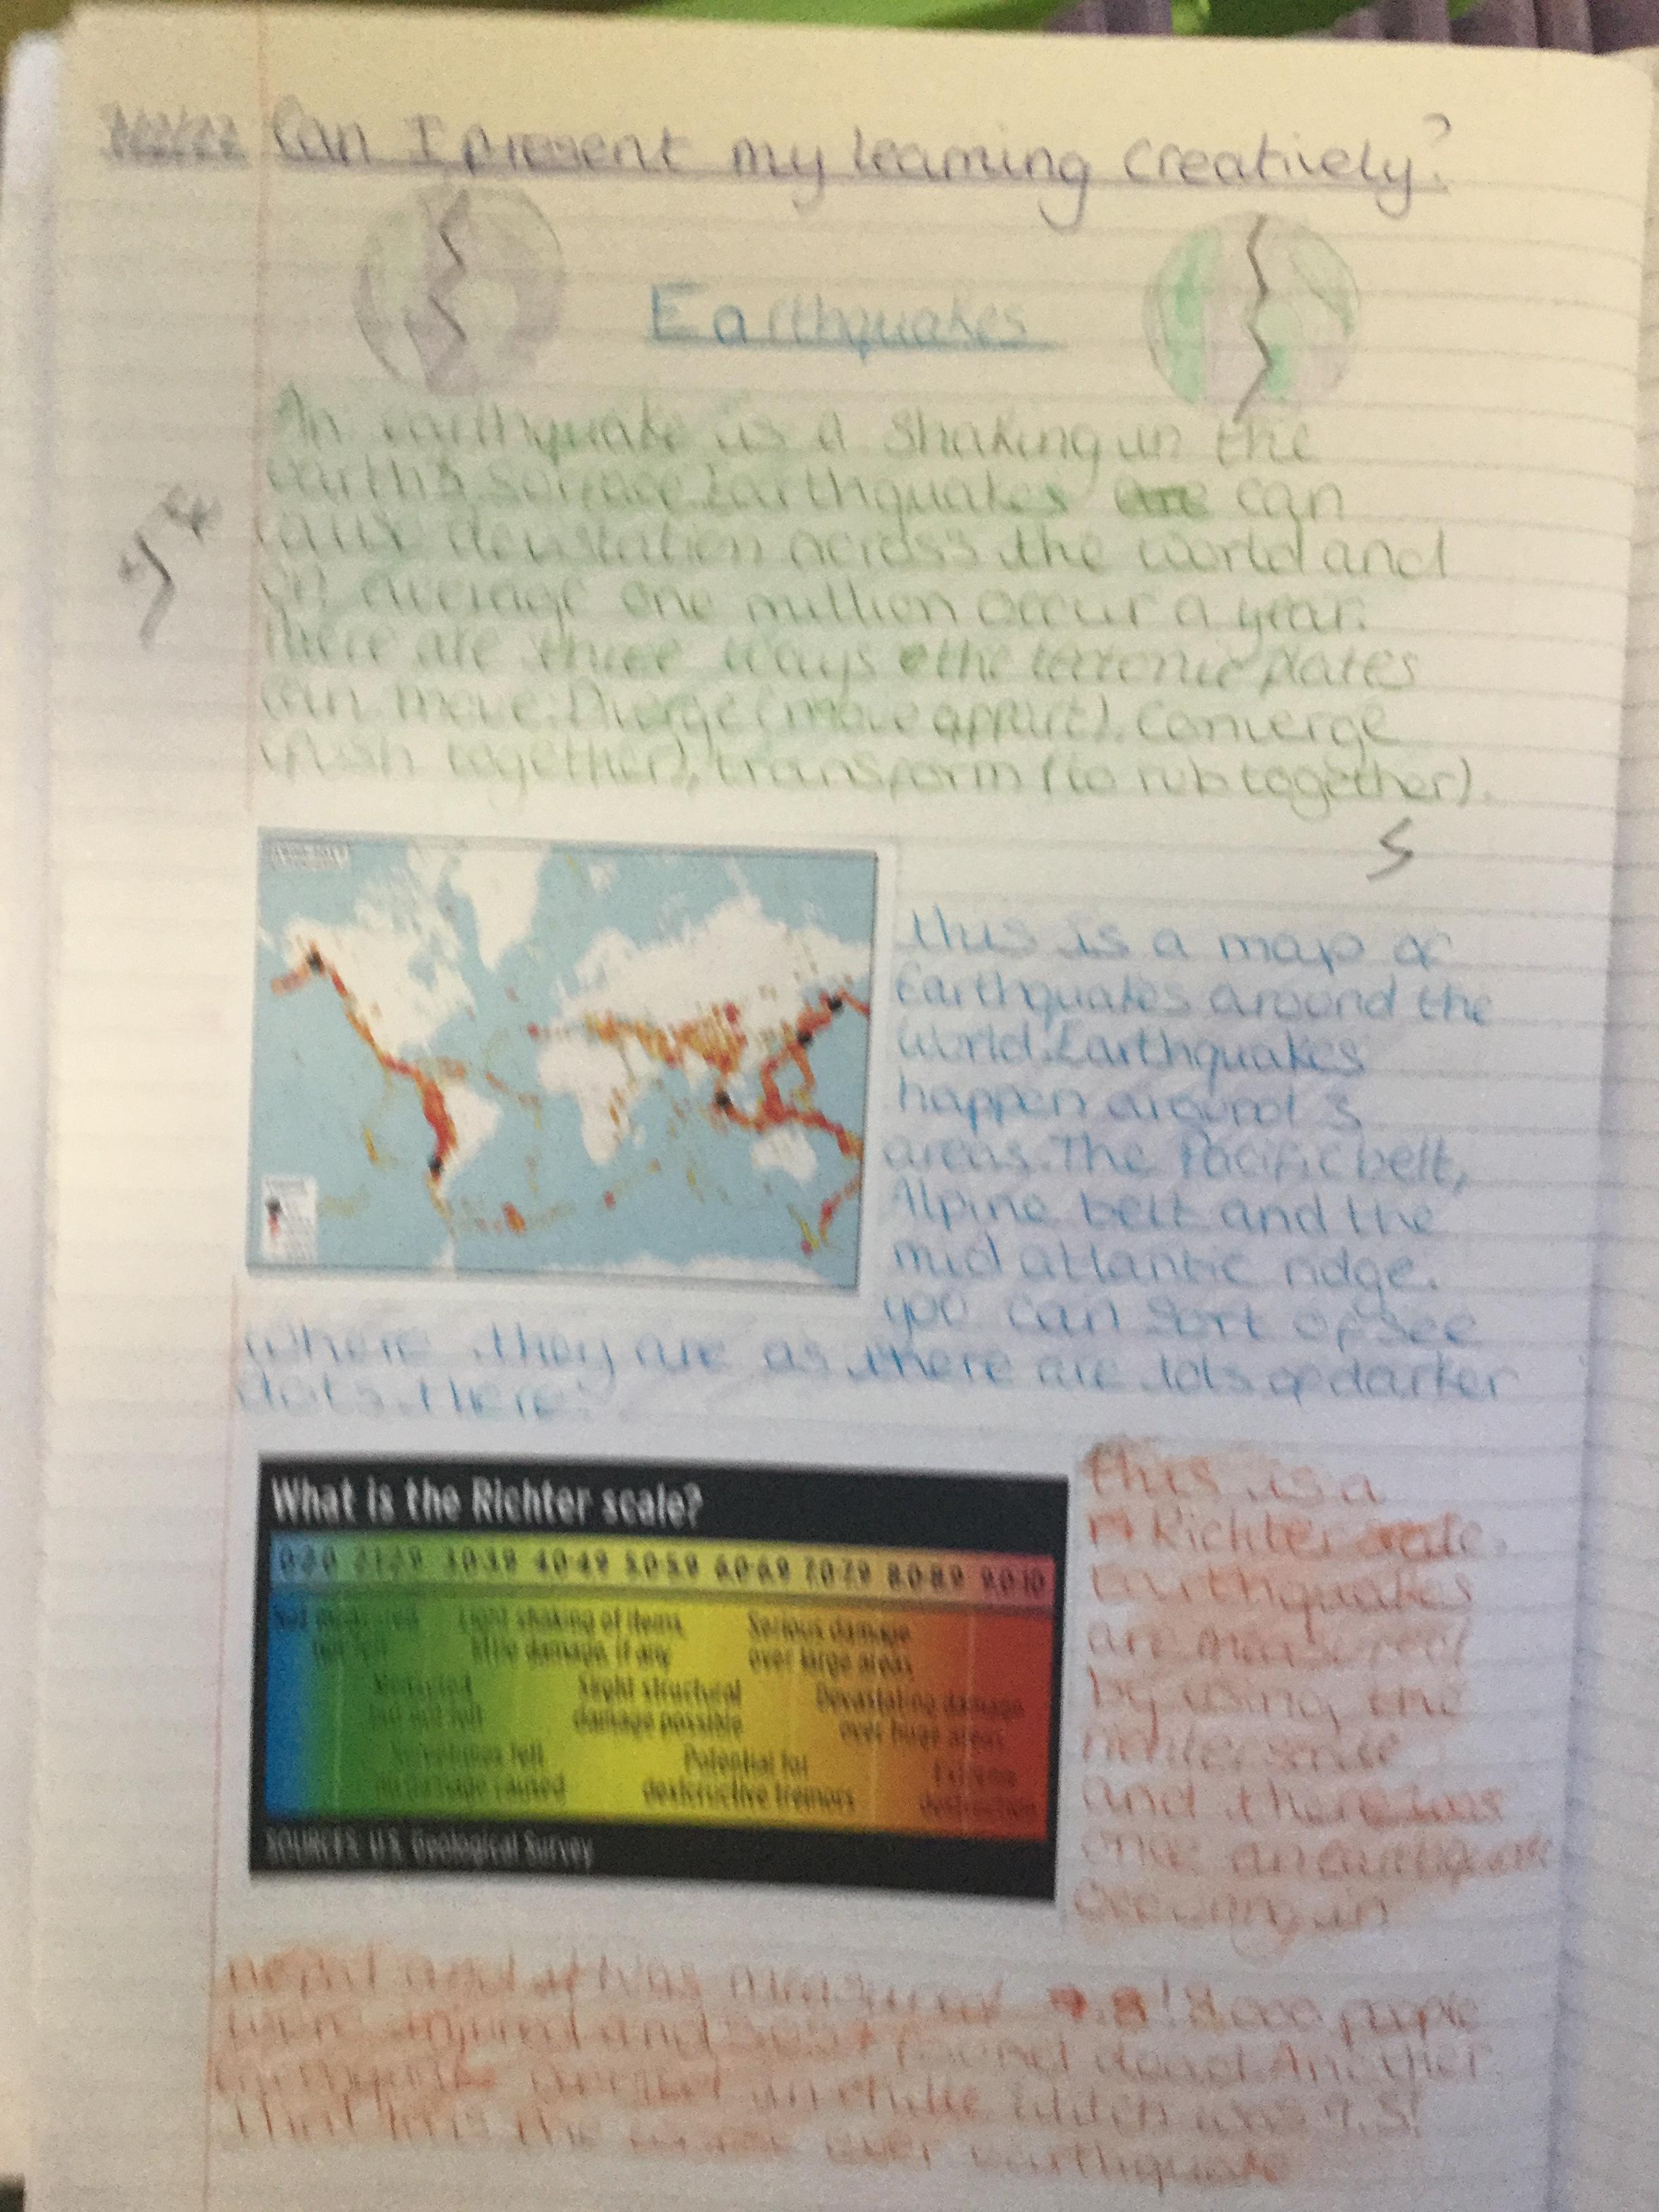 Can I present my learning creatively?
Earthquakes
An earthquake is a shaking in the
earth's surface. Earthquakes can
cause devastation across the world and
on average one million occur a year.
There are three ways the tectonic plates
can move: Diverge (move appart), Converge
(Push together), transform (to rub together).
S
this is a map of
Earthquakes around the
World. Earthquakes
happen around 3
areas. The Pacific belt,
Alpine belt and the
mid atlantic ridge.
you can sort of see
where they are as there are lots of darker
dots there.
What is the Richter scale?
0-2.0 2.1-2.9 3.0-3.9 4.0-4.9 5.0-5.9 6.0-6.9 7.0-7.9 8.0-8.9 9.0-10
Light shaking of items, Serious damage
not felt little damage, if any over large areas
Slight structural Devastating damage
but not felt damage possible over huge areas
felt Potential for Extreme
no damage caused destructive tremors destruction
SOURCES: U.S. Geological Survey
this is a
Richter scale.
Earthquakes
are
by using the
richter scale
and there was
once an earthquake
in
nepal and it was measured 8,000 people
were injured and found dead. Another
earthquake in chille witch was 9.5!
That was the ever earthquake